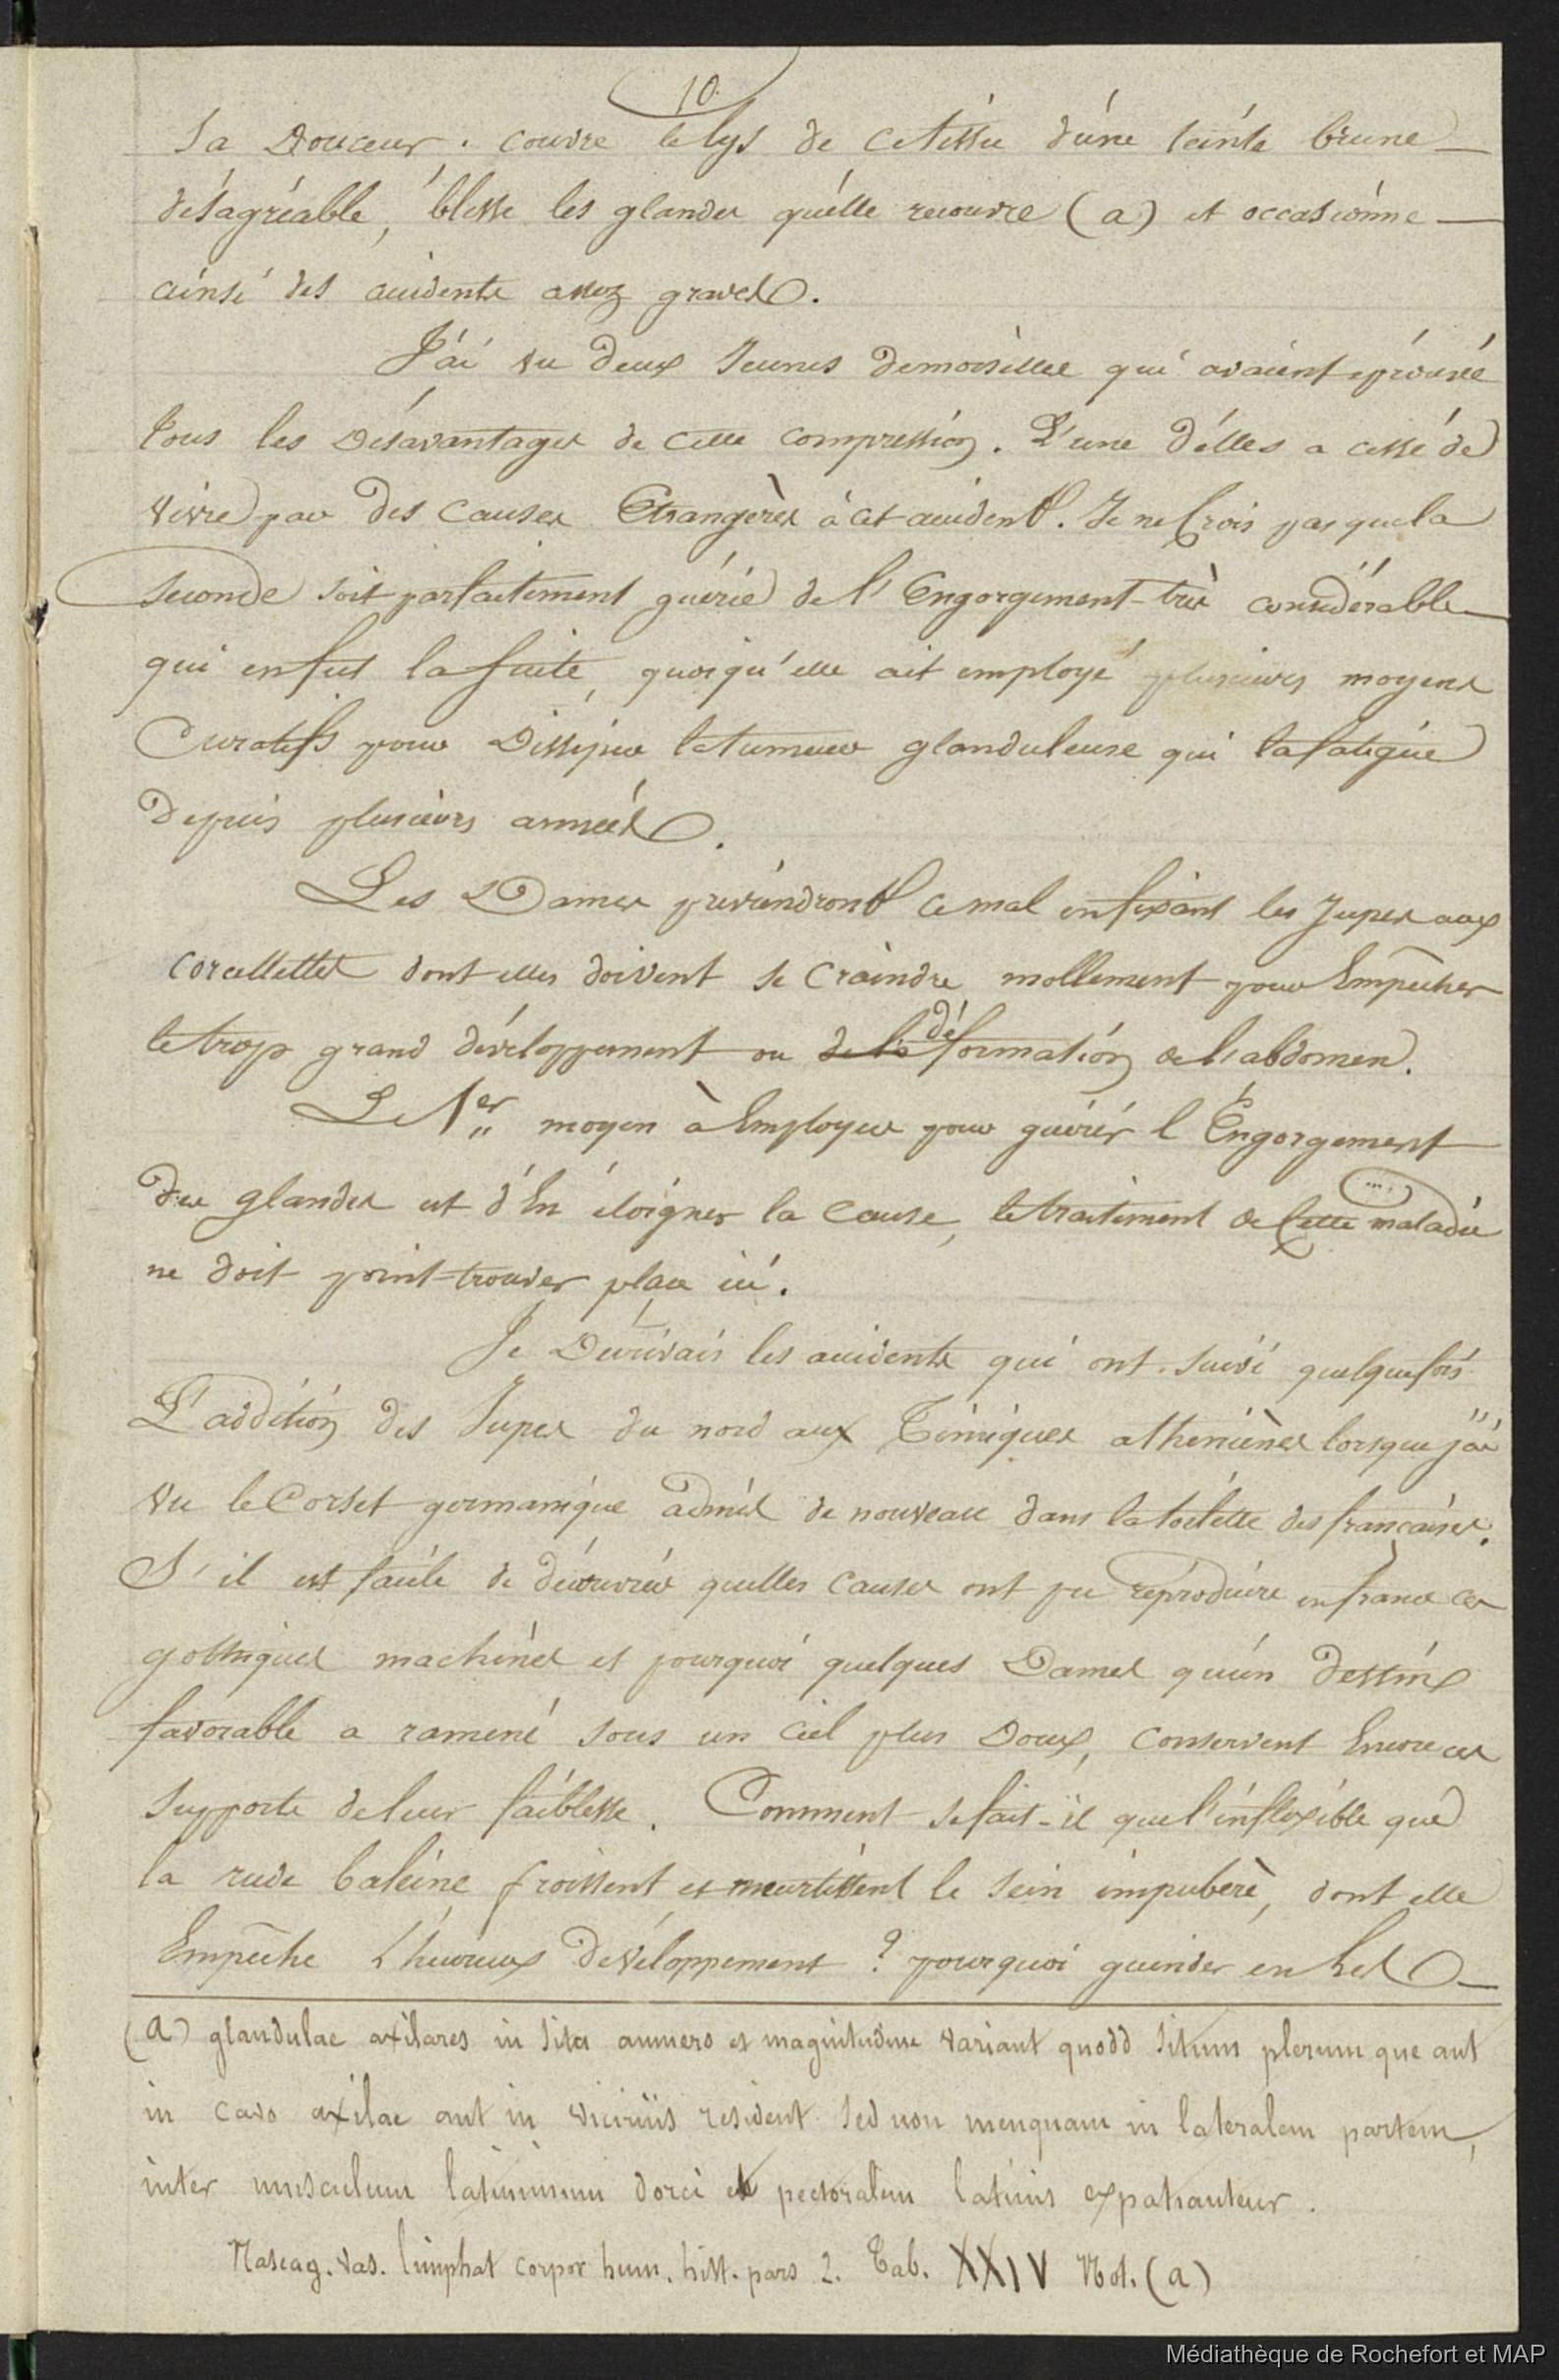 10.
Sa Douceur. couvre le lys de ce tissu d'une teinte brune
désagréable, blesse les glandes qu'elle recouvre (a) et occasionne
ainsi des accidents assez graves.
J'ai vu deux Jeunes demoiselles qui avaient eprouvé
tous les Désavantages de cette compression. L'une d'elles a cessé de
vivre par des causes Etrangères à cet accident. Je ne Crois pas que la
seconde soit parfaitement guérie de l'Engorgement très considérable
qui en fut la suite, quoiqu'elle ait employé plusieurs moyens
Curatifs pour Dissiper la tumeur glanduleuse qui la fatigue
Depuis plusieurs années.
Les Dames préviendront ce mal en fixant les Jupes aux
corcellettes dont elles doivent se craindre mollement pour Empêcher
le trop grand développement ou de la déformation de l'abdomen.
Le 1er moyen à Employer pour guérir l'Engorgement
des glandes est d'En éloigner la Cause, le traitement de Cette maladie
ne doit point trouver place ici.
Je Décrivais les accidents qui ont suivi quelquefois
L'addition des Jupes du nord aux Tuniques athéniènes lorsque j'ai
vu le Corset germanique admis de nouveau dans la toilette des françaises.
S'il est facile de découvrir quelles causes ont pu réproduire en france ces
gothiques machines et pourquoi quelques Dames qu'un destin
favorable a ramené sous un ciel plus Doux, conservent Encore ces
supports de leur faiblesse. Comment se fait-il que l'inflexible que
la rude baleine froissent et meurtissent le sein impubère, dont elle
Empêche l'heureux développement ? pourquoi guinder en hel
(a) glandulae axilares in situ numero et magnitudine variant quodd situm plerum que aut
in cavo axilae aut in viciniis resident sed non menquam in lateralem partem,
inter musculum latimimum dorci et pectoralem latius expatiauteur.
Mascag. vas. limphat corpor hum. hist. pars 2. Tab. XXIV Not. (a)
Médiathèque de Rochefort et MAP